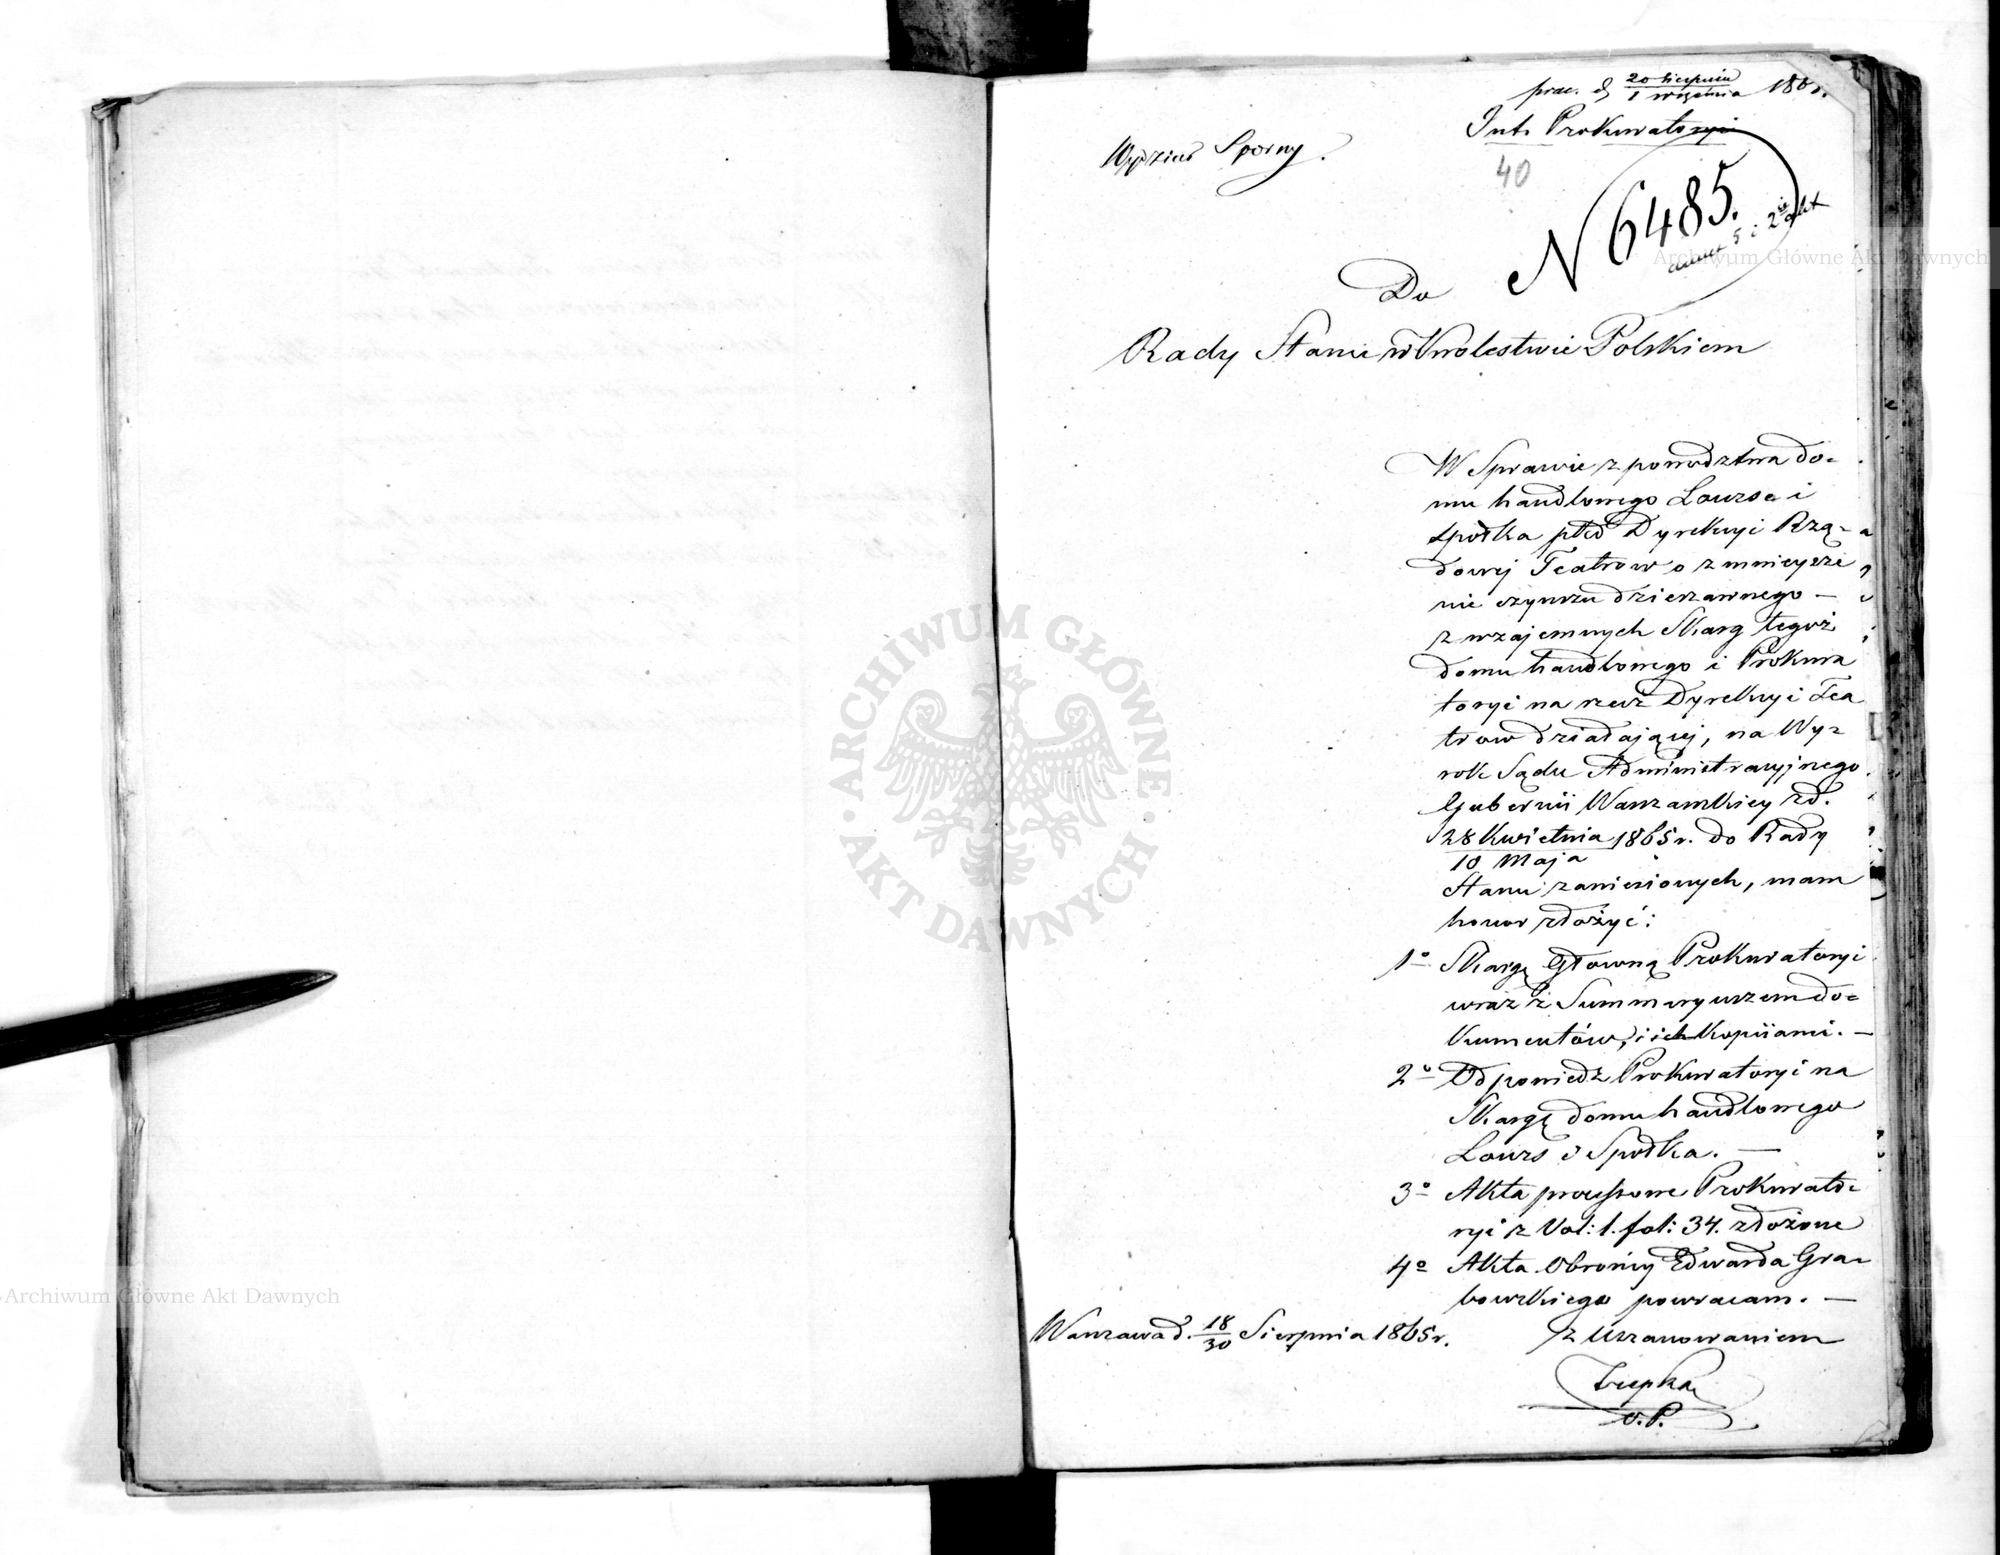 prae. d. 20 Sierpnia 1865r.
1 Września
Int. Prokuratoryi
Wydział Sporny.
40
N 6485.
5 i 2 akt
Do
Rady Stanu w Królestwie Polskiem
W Sprawie z powództwa do-
mu handlowego Lourse i
spółka płko Dyrekcyi Rzą-
dowej Teatrów o zmniejsze
nie czynszu dzierżawnego —
z wzajemnych Skarg tegoż
domu handlowego i Prokura
toryi na rzecz Dyrekcyi Tea
trów działającej, na Wy-
rok Sądu Administracyjnego
Gubernii Warszawskiey z d.
28 Kwietnia 1865 r. do Rady
10 Maja
Stanu zaniesionych, mam
honor złożyć:
1º Skargę Główną Prokuratoryi
wraz z Summaryuszem do-
kumentów, i ich Kopiiami. —
2º Odpowiedź Prokuratoryi na
Skargę domu handlowego
Lours i Spółka. —
3º Akta processowe Prokurato-
ryi z Vol: 1. fol: 34. złożone
4º Akta Obrońcy Edwarda Gra-
bowskiego powracam. —
Warszawa d. 18/30 Sierpnia 1865 r.
z Uszanowaniem
o. P.
Archiwum Główne Akt Dawnych
ARCHIWUM GŁÓWNE · AKT DAWNYCH ·
Archiwum Główne Akt Dawnych